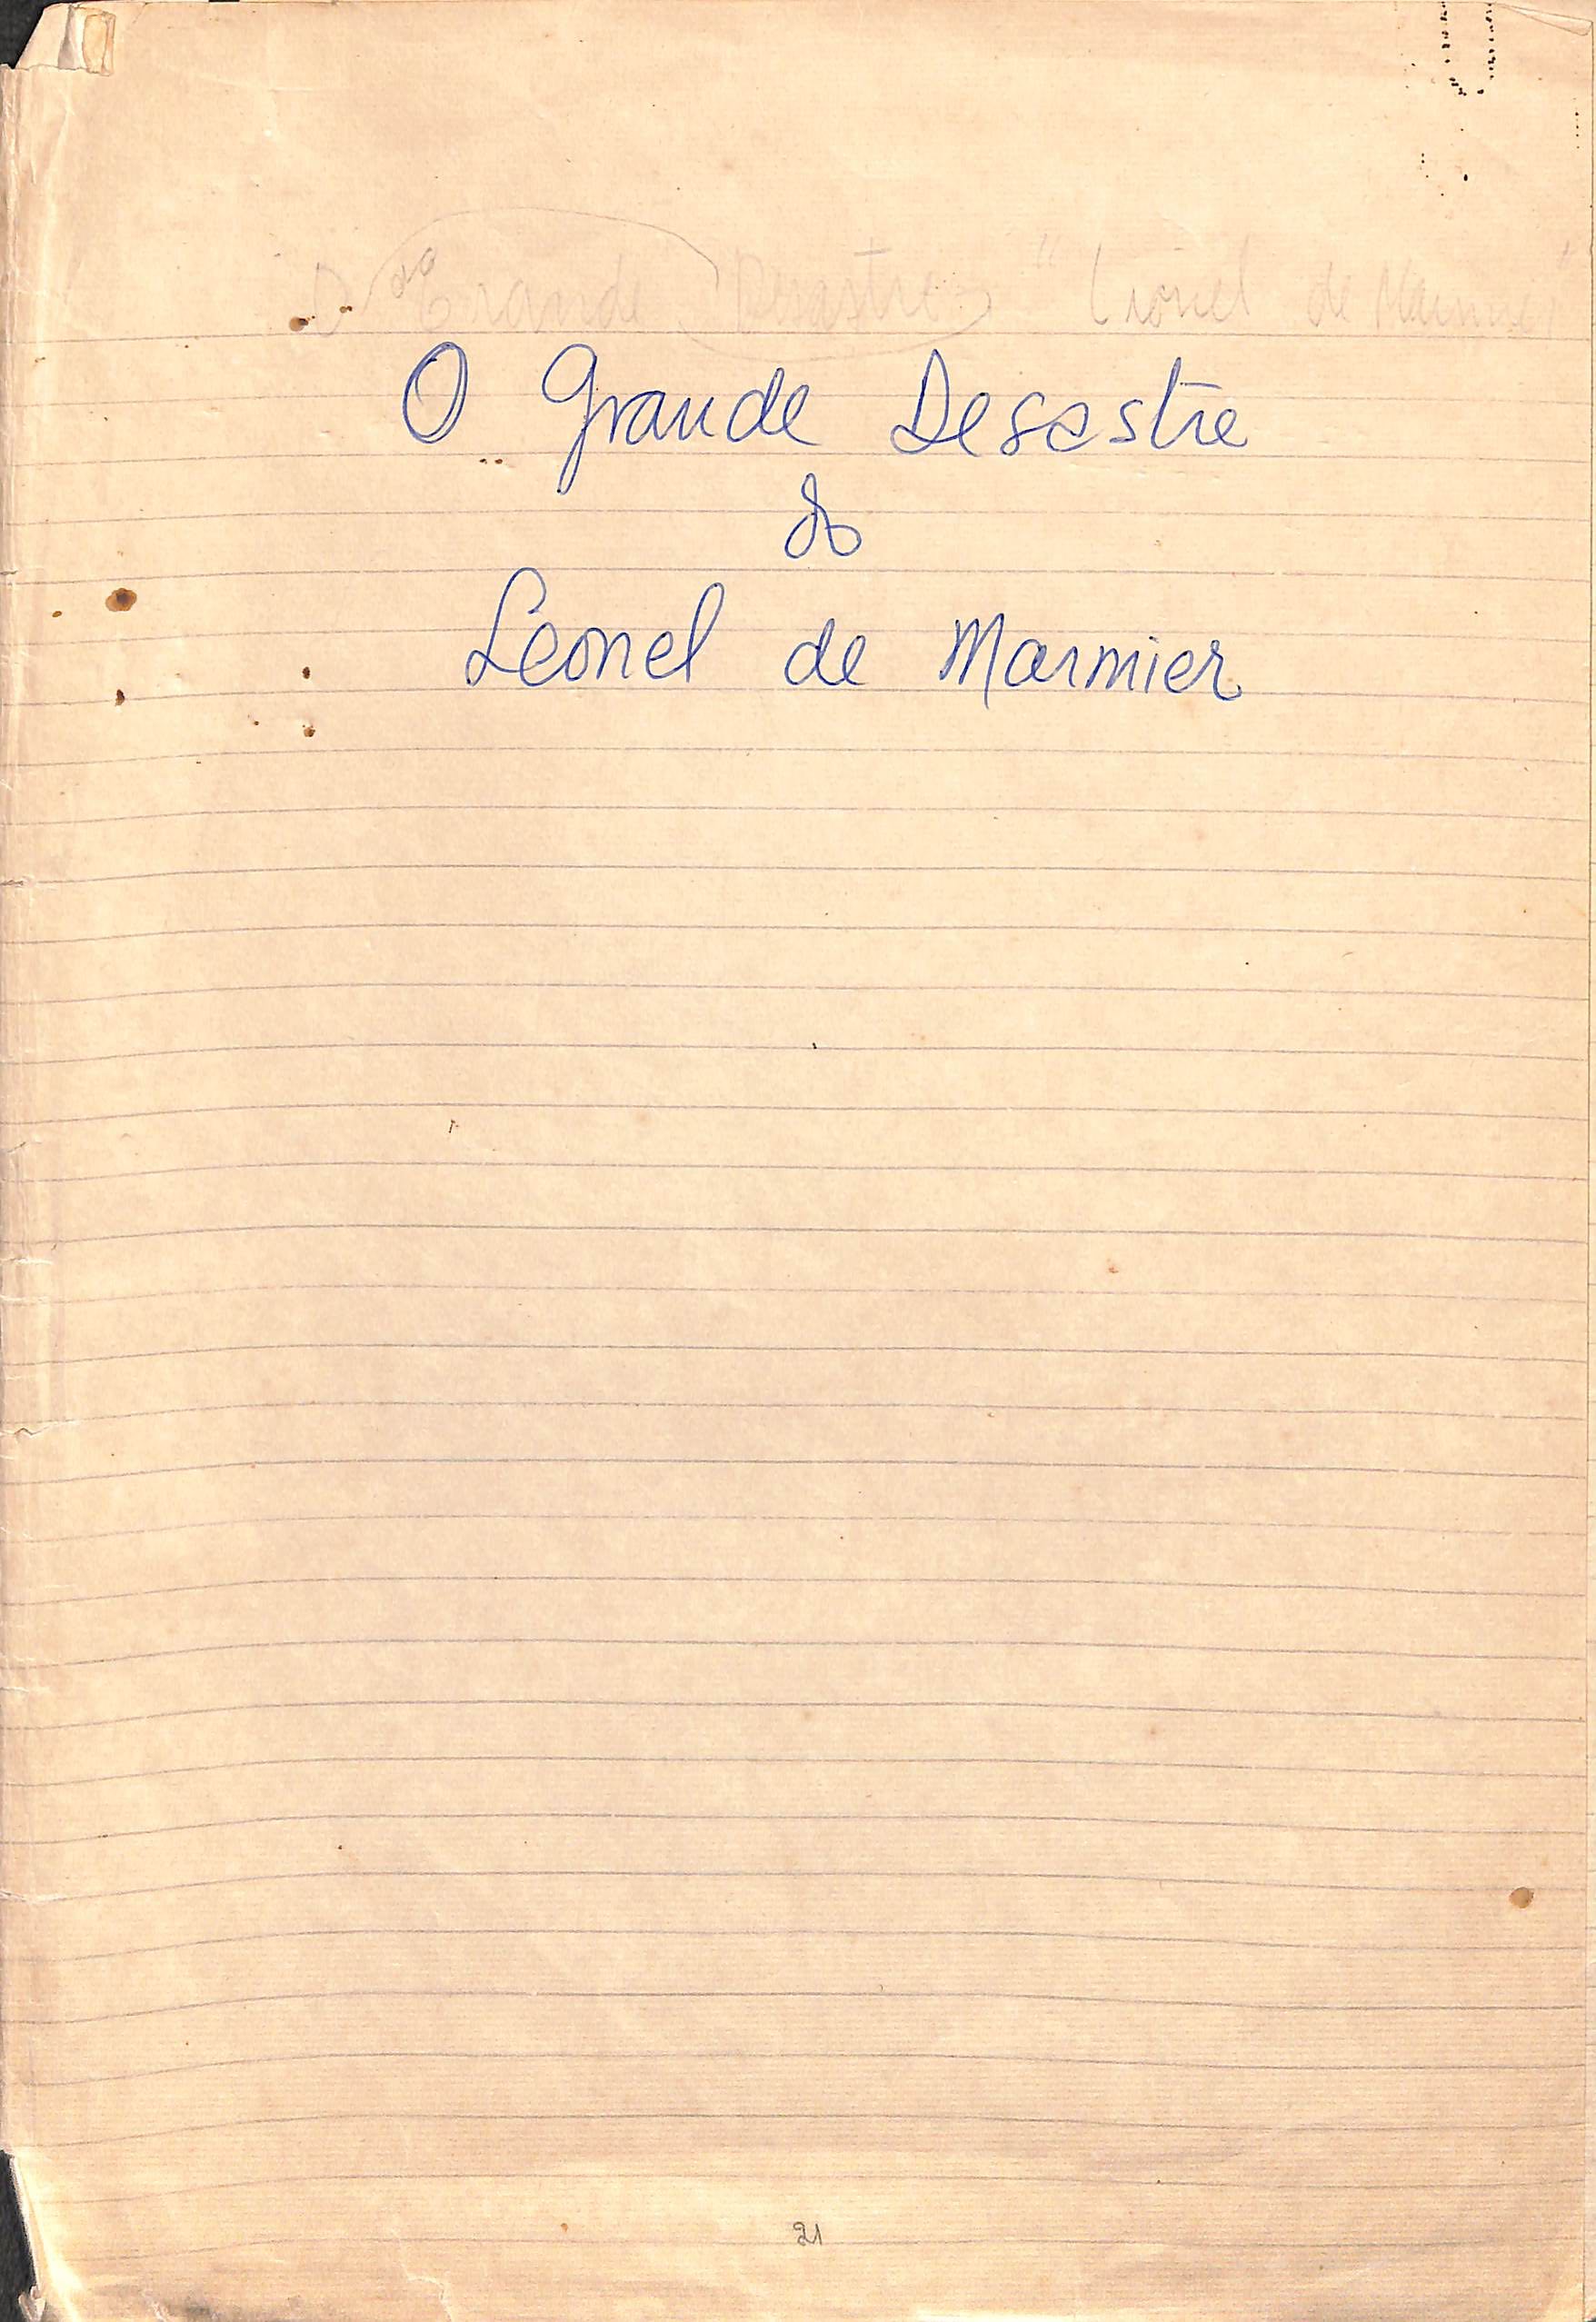 O Grande Desastre "Lionel de Marmier"
O Grande Desastre
do
Leonel de Marmier
21